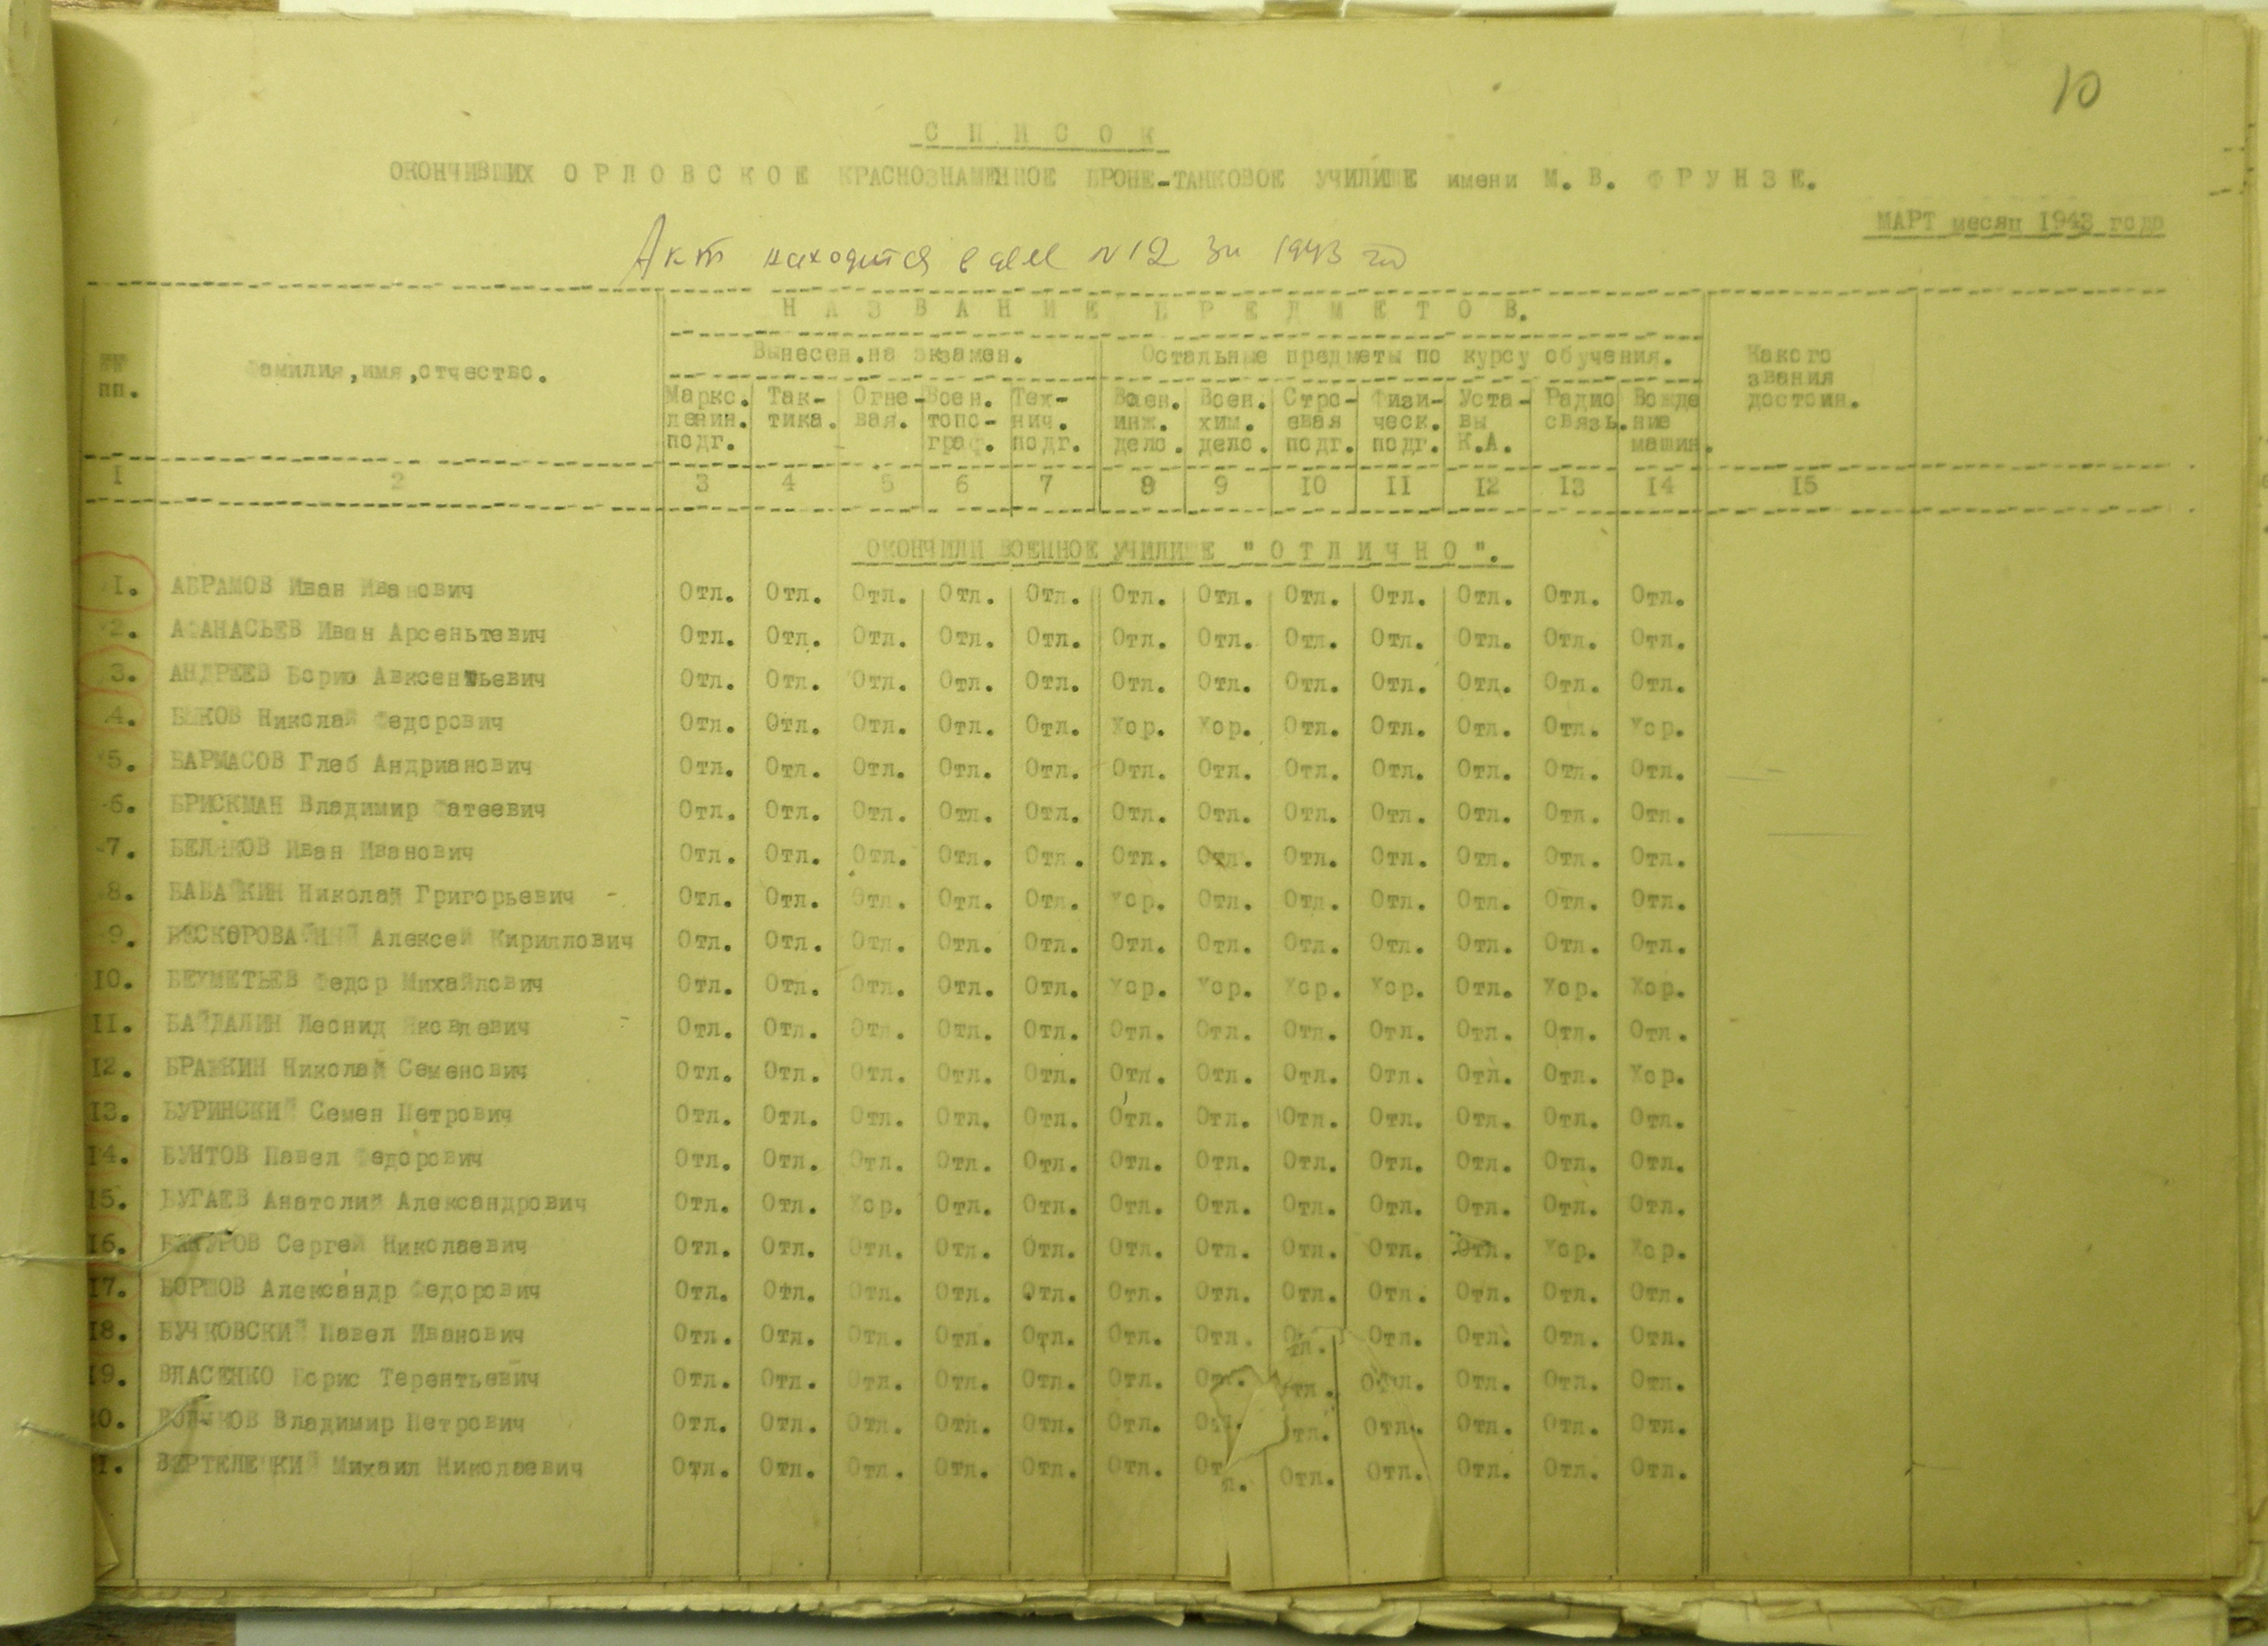 10
С П И С О К
ОКОНЧИВШИХ О Р Л О В С К О Е КРАСНОЗНАМЕННОЕ БРОНЕ-ТАНКОВОЕ УЧИЛИЩЕ имени М. В. Ф Р У Н З Е.
МАРТ месяц 1943 года
Акт находится в деле №12 за 1943 год
Н А З В А Н И Е П Р Е Д М Е Т О В.
Вынесен.на экзамен. Остальные предметы по курсу обучения.
№№ пп. Фамилия,имя,отчество. Маркс. ленин. подг. Так- тика. Огне- вая. Воен. топо- граф. Тех- нич. подг. Воен. инж. дело. Воен. хим. дело. Стро- евая подг. Физи- ческ. подг. Уста- вы К.А. Радио связь. Вожде ние машин. Какого звания достоин.
I 2 3 4 5 6 7 8 9 I0 II I2 I3 I4 I5
ОКОНЧИЛИ ВОЕННОЕ УЧИЛИЩЕ "О Т Л И Ч Н О".
I. АБРАМОВ Иван Иванович Отл. Отл. Отл. Отл. Отл. Отл. Отл. Отл. Отл. Отл. Отл. Отл.
2. АФАНАСЬЕВ Иван Арсеньтевич Отл. Отл. Отл. Отл. Отл. Отл. Отл. Отл. Отл. Отл. Отл. Отл.
3. АНДРЕЕВ Борис Авксентьевич Отл. Отл. Отл. Отл. Отл. Отл. Отл. Отл. Отл. Отл. Отл. Отл.
4. БЫКОВ Николай Федорович Отл. Отл. Отл. Отл. Отл. Хор. Хор. Отл. Отл. Отл. Отл. Хор.
5. БАРМАСОВ Глеб Андрианович Отл. Отл. Отл. Отл. Отл. Отл. Отл. Отл. Отл. Отл. Отл. Отл.
6. БРИСКМАН Владимир Фатеевич Отл. Отл. Отл. Отл. Отл. Отл. Отл. Отл. Отл. Отл. Отл. Отл.
7. БЕЛЯКОВ Иван Иванович Отл. Отл. Отл. Отл. Отл. Отл. Отл. Отл. Отл. Отл. Отл. Отл.
8. Николай Григорьевич Отл. Отл. Отл. Отл. Отл. Хор. Отл. Отл. Отл. Отл. Отл. Отл.
9. БЕСКОРОВАЙНЫЙ Алексей Кириллович Отл. Отл. Отл. Отл. Отл. Отл. Отл. Отл. Отл. Отл. Отл. Отл.
I0. БЕХМЕТЬЕВ Федор Михайлович Отл. Отл. Отл. Отл. Отл. Хор. Хор. Хор. Хор. Отл. Хор. Хор.
II. БАЙДАЛИН Леонид Яковлевич Отл. Отл. Отл. Отл. Отл. Отл. Отл. Отл. Отл. Отл. Отл. Отл.
I2. Николай Семенович Отл. Отл. Отл. Отл. Отл. Отл. Отл. Отл. Отл. Отл. Отл. Хор.
I3. БУРИНСКИЙ Семен Петрович Отл. Отл. Отл. Отл. Отл. Отл. Отл. Отл. Отл. Отл. Отл. Отл.
I4. БУНТОВ Павел Федорович Отл. Отл. Отл. Отл. Отл. Отл. Отл. Отл. Отл. Отл. Отл. Отл.
I5. БУГАЕВ Анатолий Александрович Отл. Отл. Хор. Отл. Отл. Отл. Отл. Отл. Отл. Отл. Отл. Отл.
I6. Сергей Николаевич Отл. Отл. Отл. Отл. Отл. Отл. Отл. Отл. Отл. Отл. Хор. Хор.
I7. БОРЩОВ Александр Федорович Отл. Отл. Отл. Отл. Отл. Отл. Отл. Отл. Отл. Отл. Отл. Отл.
I8. БУЧКОВСКИЙ Павел Иванович Отл. Отл. Отл. Отл. Отл. Отл. Отл. Отл. Отл. Отл. Отл. Отл.
I9. ВЛАСЕНКО Борис Терентьевич Отл. Отл. Отл. Отл. Отл. Отл. Отл. Отл. Отл. Отл. Отл. Отл.
0. Владимир Петрович Отл. Отл. Отл. Отл. Отл. Отл. Отл. Отл. Отл. Отл. Отл. Отл.
I. ВЕРТЕЛЕЦКИЙ Михаил Николаевич Отл. Отл. Отл. Отл. Отл. Отл. Отл. Отл. Отл. Отл. Отл. Отл.